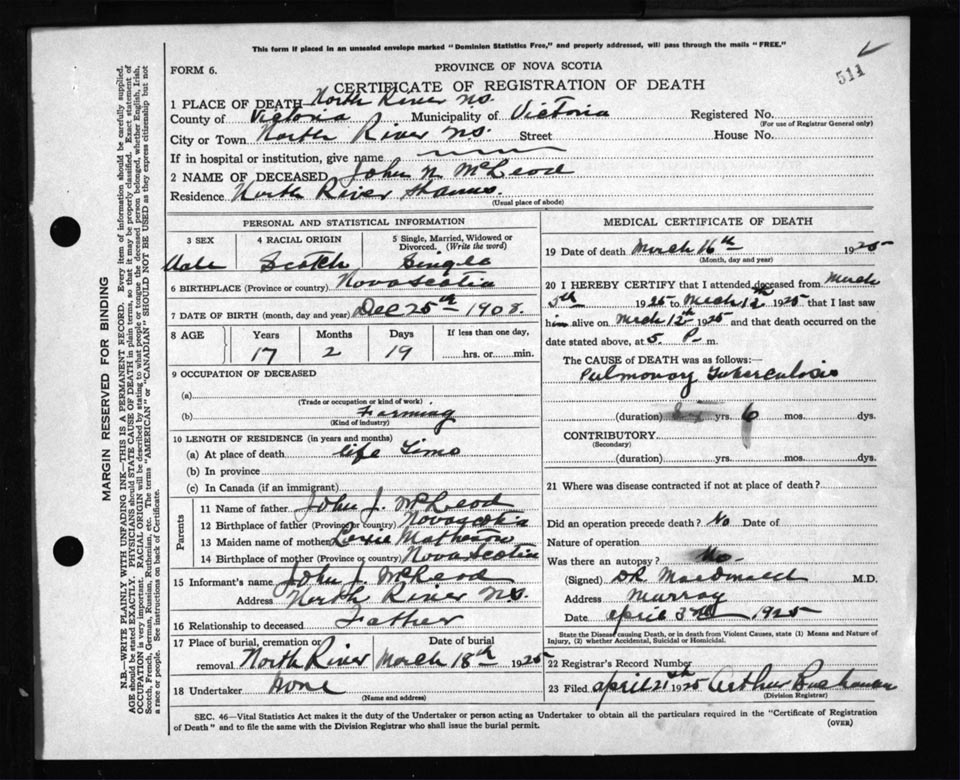 This form if placed in an unsealed envelope marked "Dominion Statistics Free," and properly addressed, will pass through the mails "FREE."
511
FORM 6.
PROVINCE OF NOVA SCOTIA
CERTIFICATE OF REGISTRATION OF DEATH
1 PLACE OF DEATH North River N.S.
County of Victoria Municipality of Victoria Registered No.
(For use of Registrar General only)
City or Town North River N.S. Street House No.
If in hospital or institution, give name
2 NAME OF DECEASED John N McLeod
Residence North River
(Usual place of abode)
PERSONAL AND STATISTICAL INFORMATION
3 SEX 4 RACIAL ORIGIN 5 Single, Married, Widowed or Divorced. (Write the word)
Male Scotch Single
6 BIRTHPLACE (Province or country) Nova Scotia
7 DATE OF BIRTH (month, day and year) Dec 25th 1908.
8 AGE Years Months Days If less than one day,
17 2 19 hrs. or min.
9 OCCUPATION OF DECEASED
(a)
(Trade or occupation or kind of work)
(b) Farming
(Kind of industry)
10 LENGTH OF RESIDENCE (in years and months)
(a) At place of death life Time
(b) In province
(c) In Canada (if an immigrant)
Parents
11 Name of father John J. McLeod
12 Birthplace of father (Province or country) Nova Scotia
13 Maiden name of mother Matheson
14 Birthplace of mother (Province or country) Nova Scotia
15 Informant's name John J. McLeod
Address North River N.S.
16 Relationship to deceased Father
17 Place of burial, cremation or removal North River Date of burial March 18th 1925
18 Undertaker None
(Name and address)
MEDICAL CERTIFICATE OF DEATH
19 Date of death March 16th 1925
(Month, day and year)
20 I HEREBY CERTIFY that I attended deceased from March
5th 1925 to March 12th 1925 that I last saw
him alive on March 12th 1925 and that death occurred on the
date stated above, at 5. P. m.
The CAUSE OF DEATH was as follows:—
Pulmonary Tuberculosis
(duration) yrs. 6 mos. dys.
CONTRIBUTORY
(Secondary)
(duration) yrs. mos. dys.
21 Where was disease contracted if not at place of death?
Did an operation precede death? No Date of
Nature of operation
Was there an autopsy? No
(Signed) DR. MacDonald M.D.
Address Murray
Date April 3rd 1925
State the Disease causing Death, or in death from Violent Causes, state (1) Means and Nature of
Injury, (2) whether Accidental, Suicidal or Homicidal.
22 Registrar's Record Number
23 Filed April 21st 1925 Arthur Buchanan
(Division Registrar)
SEC. 46—Vital Statistics Act makes it the duty of the Undertaker or person acting as Undertaker to obtain all the particulars required in the "Certificate of Registration
of Death" and to file the same with the Division Registrar who shall issue the burial permit.
(OVER)
MARGIN RESERVED FOR BINDING
N.B.—WRITE PLAINLY WITH UNFADING INK—THIS IS A PERMANENT RECORD. Every item of information should be carefully supplied.
AGE should be stated EXACTLY. PHYSICIANS should STATE CAUSE OF DEATH in plain terms, so that it may be properly classified. Exact statement of
OCCUPATION is very important. RACIAL ORIGIN will be described by stating to what people or tongue the deceased person belonged, whether English, Irish,
Scotch, French, German, Russian, Ruthenian, etc. The terms "AMERICAN" or "CANADIAN" SHOULD NOT BE USED as they express citizenship but not
a race or people. See instructions on back of Certificate.